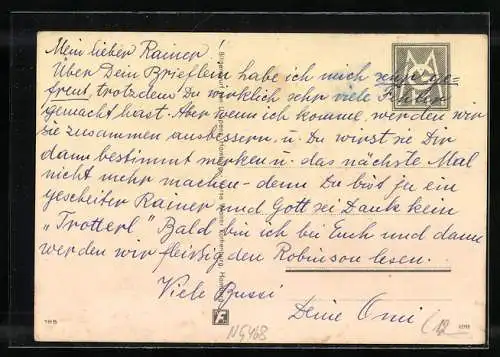 Mein lieber Rainer!
Über Dein Brieflein habe ich mich sehr ge-
freut, trotzdem Du wirklich sehr viele Fehler
gemacht hast. Aber wenn ich komme, werden wir
sie zusammen ausbessern, u. Du wirst sie Dir
dann bestimmt merken u. das nächste Mal
nicht mehr machen - denn Du bist ja ein
gescheiter Rainer und Gott sei Dank kein
„Trotterl" Bald bin ich bei Euch und dann
werden wir fleißig den Robinson lesen.
Viele Bussi
Deine Omi
N5468